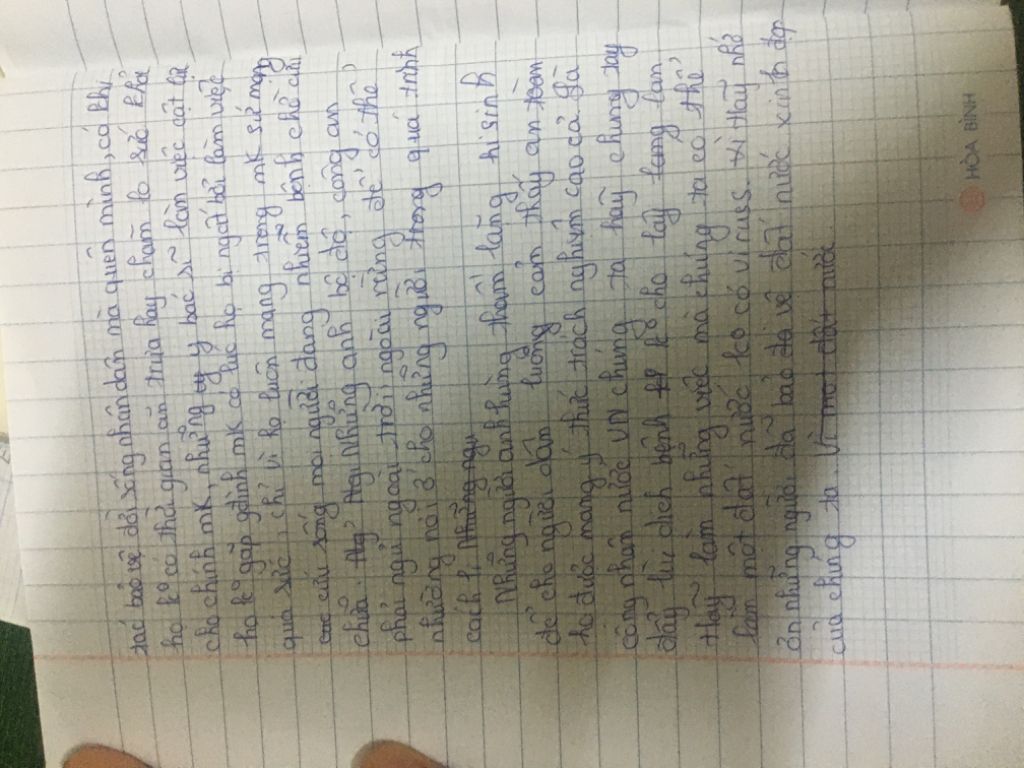 tác bảo vệ đời sống nhân dân mà quên mình, có khi
họ ko có thời gian ăn trưa hay chăm lo sức khỏe
cho chính mk, những y bác sĩ làm việc cật lực
họ ko gặp gđình mk có lúc họ bị ngất bởi làm việc
quá sức, chỉ vì họ luôn mang trong mk sứ mạng
cứu sống mọi người đang nhiễm bệnh chờ cứu
chữa. Những anh bộ đội, công an
phải ngủ ngoài trời ngoài rừng để có thể
nhường nơi ở cho những người trong quá trình
cách li
Những người anh hùng thầm lặng hi sinh
để cho người dân luông cảm thấy an toàn
họ được mang ý thức trách nghiệm cao cả là
công nhân nước VN chúng ta hãy chung tay
đẩy lùi dịch bệnh ko cho lây lan
Hãy làm những việc mà chúng ta có thể
làm một đất nước ko có viruss. vì Hãy nhớ
ơn những người đã bảo vệ đất nước xinh đẹp
của chúng ta. Vì một đất nước
HÒA BÌNH